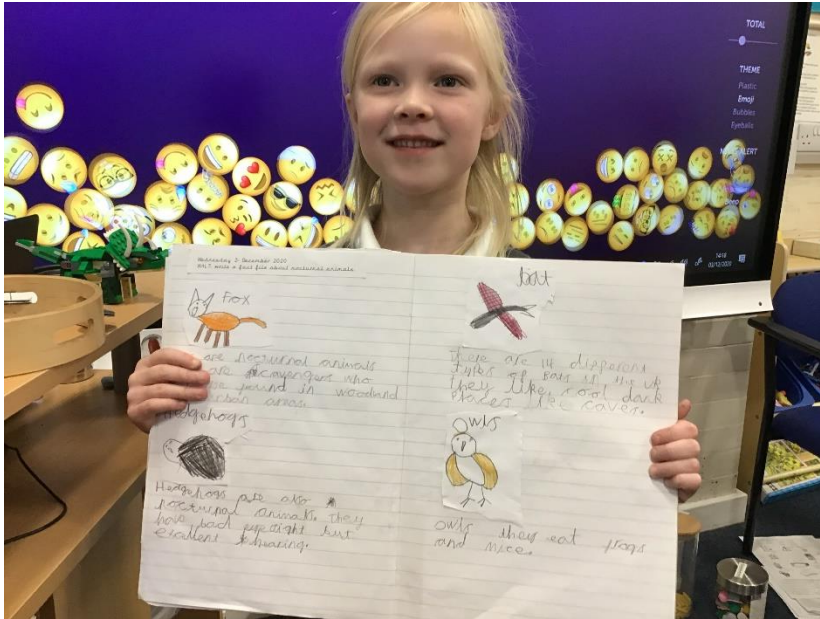 TOTAL
THEME
Plastic
Emoji
Bubbles
Eyeballs
ALERT
14:19
02/12/2020
Wednesday 2 December 2020
write a fact file about nocturnal animals
Fox
are nocturnal animals
are scavengers who
found in woodland
areas.
Hedgehogs
Hedgehogs are also
nocturnal animals. They
have bad eyesight but
excellent hearing.
bat
there are 14 different
types of bats in the uk
they like cool dark
places like caves.
owls
owls they eat frogs
and mice.